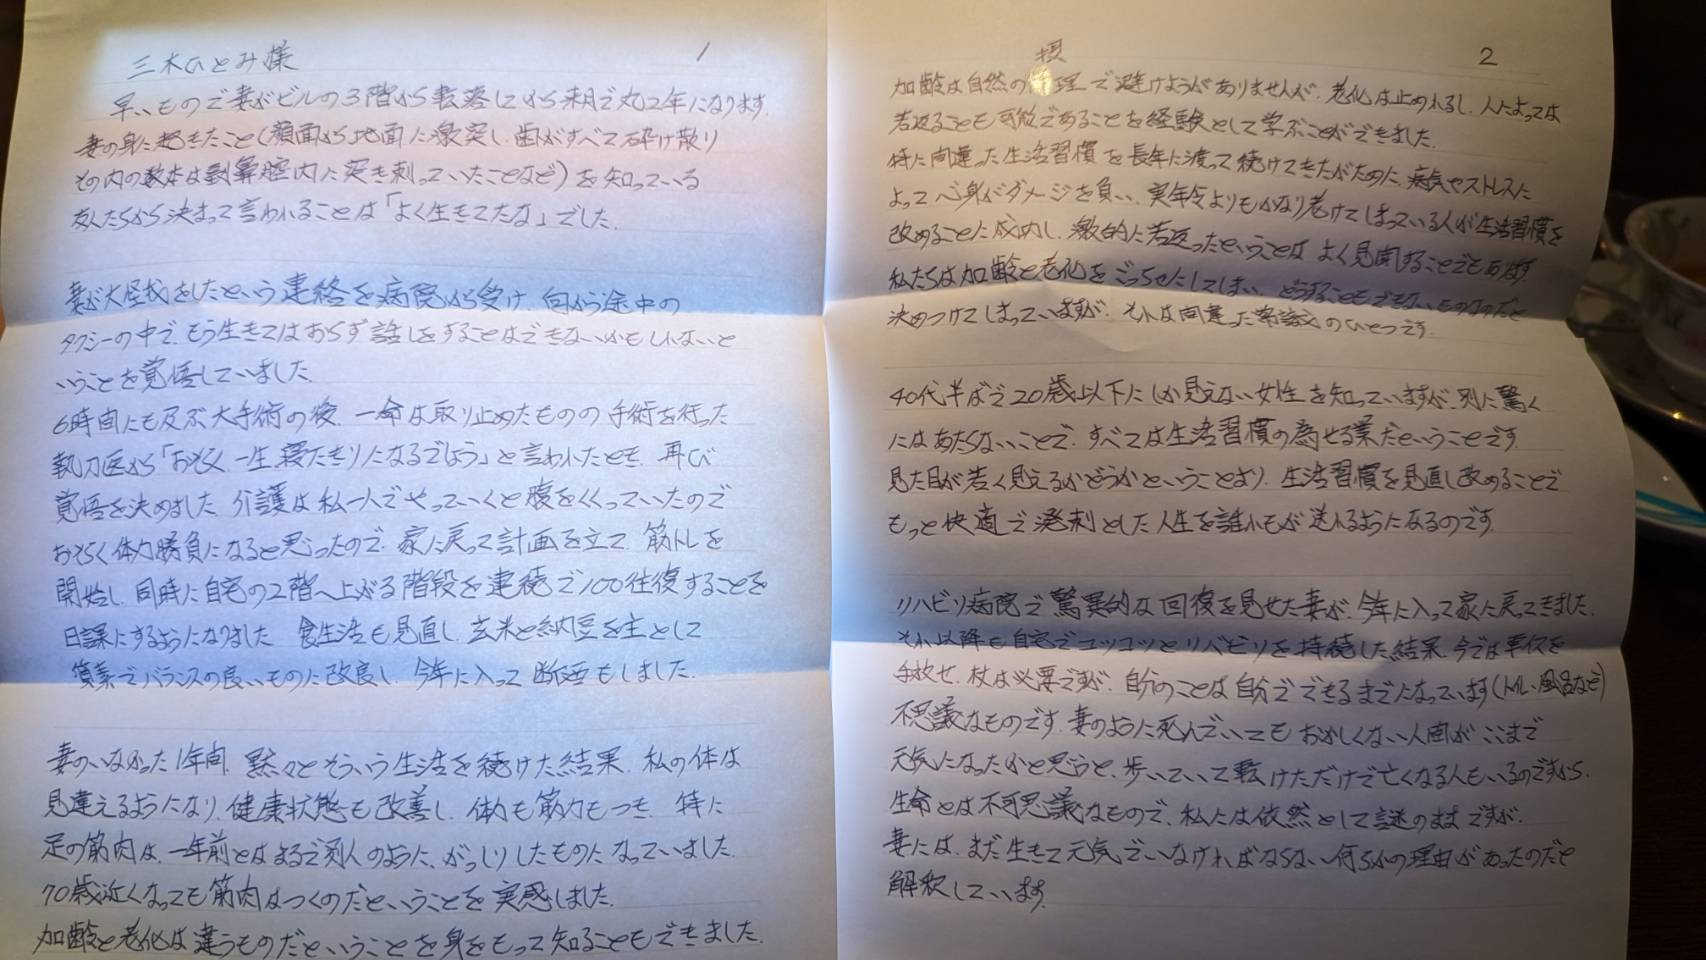 三木ひとみ様
1
早いもので妻がビルの3階から転落してから来月で丸2年になります。
妻の身に起きたこと(顔面から地面に激突し、歯がすべて砕け散り
その内の数本は副鼻腔内に突き刺っていたことなど)を知っている
友人たちから決まって言われることは「よく生きてたな」でした。
妻が大怪我をしたという連絡を病院から受け、向かう途中の
タクシーの中で、もう生きてはおらず話しをすることはできないかもしれないと
いうことを覚悟していました。
6時間にも及ぶ大手術の後、一命は取り止めたものの手術を行った
執刀医から「おそらく一生寝たきりになるでしょう」と言われたとき、再び
覚悟を決めました。介護は私一人でやっていくと腹をくくっていたので
おそらく体力勝負になると思ったので、家に戻って計画を立て、筋トレを
開始し、同時に自宅の2階へ上がる階段を連続で100往復することを
日課にするようになりました。食生活も見直し、玄米と納豆を主として
質素でバランスの良いものに改良し、今年に入って断酒もしました。
妻のいなかった1年間、黙々とそういう生活を続けた結果、私の体は
見違えるようになり、健康状態も改善し、体力も筋力もつき、特に
足の筋肉は、一年前とはまるで別人のように、がっしりしたものになっていました。
70歳近くなっても筋肉はつくのだということを実感しました。
加齢と老化は違うものだということを身をもって知ることもできました。
2
摂
加齢は自然の理で避けようがありませんが、老化は止めれるし、人によっては
若返ることも可能であることを経験として学ぶことができました。
特に間違った生活習慣を長年に渡って続けてきたがために、病気やストレスに
よって心身がダメージを負い、実年令よりもかなり老けてしまっている人が生活習慣を
改めることに成功し、激的に若返ったということはよく見聞することでもあります。
私たちは加齢と老化をごっちゃにしてしまい、どうすることもできないものなのだと
決めつけてしまっていますが、それは間違った常識のひとつです。
40代半ばで20歳以下にしか見えない女性を知っていますが、別に驚く
にはあたらないことで、すべては生活習慣の為せる業だということです。
見た目が若く見えるかどうかということより、生活習慣を見直し改めることで
もっと快適で溌剌とした人生を誰れもが送れるようになるのです。
リハビリ病院で驚異的な回復を見せた妻が、今年に入って家に戻ってきました。
それ以降も自宅でコツコツとリハビリを持続した結果、今では車イスを
手放せ、杖は必要ですが、自分のことは自分でできるまでになっています(トイレ、風呂など)
不思議なものです。妻のように死んでいてもおかしくない人間がここまで
元気になったかと思うと、歩いていて転けただけで亡くなる人もいるのですから、
生命とは不可思議なもので、私には依然として謎のままですが、
妻には、まだ生きて元気でいなければならない何らかの理由があったのだと
解釈しています。